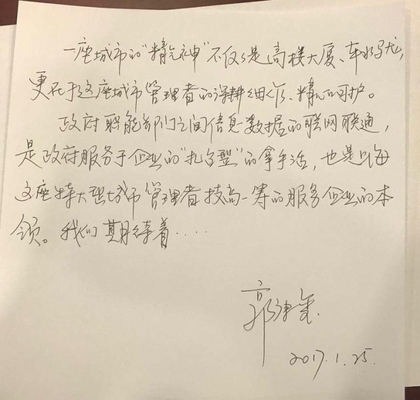 一座城市的“精气神”不仅仅是高楼大厦、车水马龙，
更在于这座城市管理者的深耕细作、精心呵护。
政府职能部门之间信息数据的联网联通，
是政府服务于企业的“扎口型”的拿手活，也是上海
这座特大型城市管理者技高一筹的服务企业的本
领。我们期待着····
郭
2017.1.25.